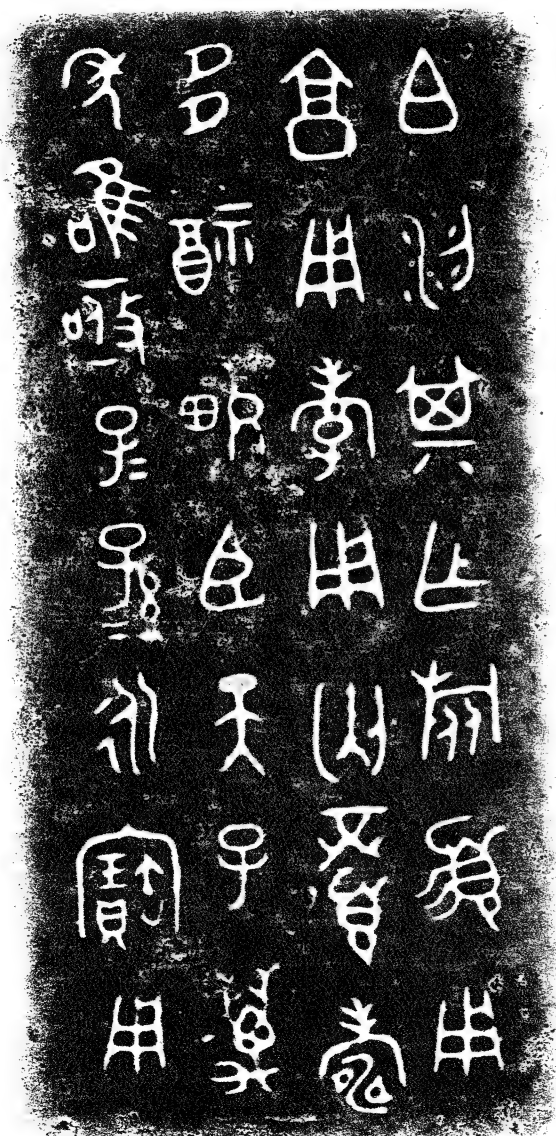 白汈其乍旅須用
亯用孝用匄眉壽
多福畯臣天子萬
年唯亟子=孫=永寶用